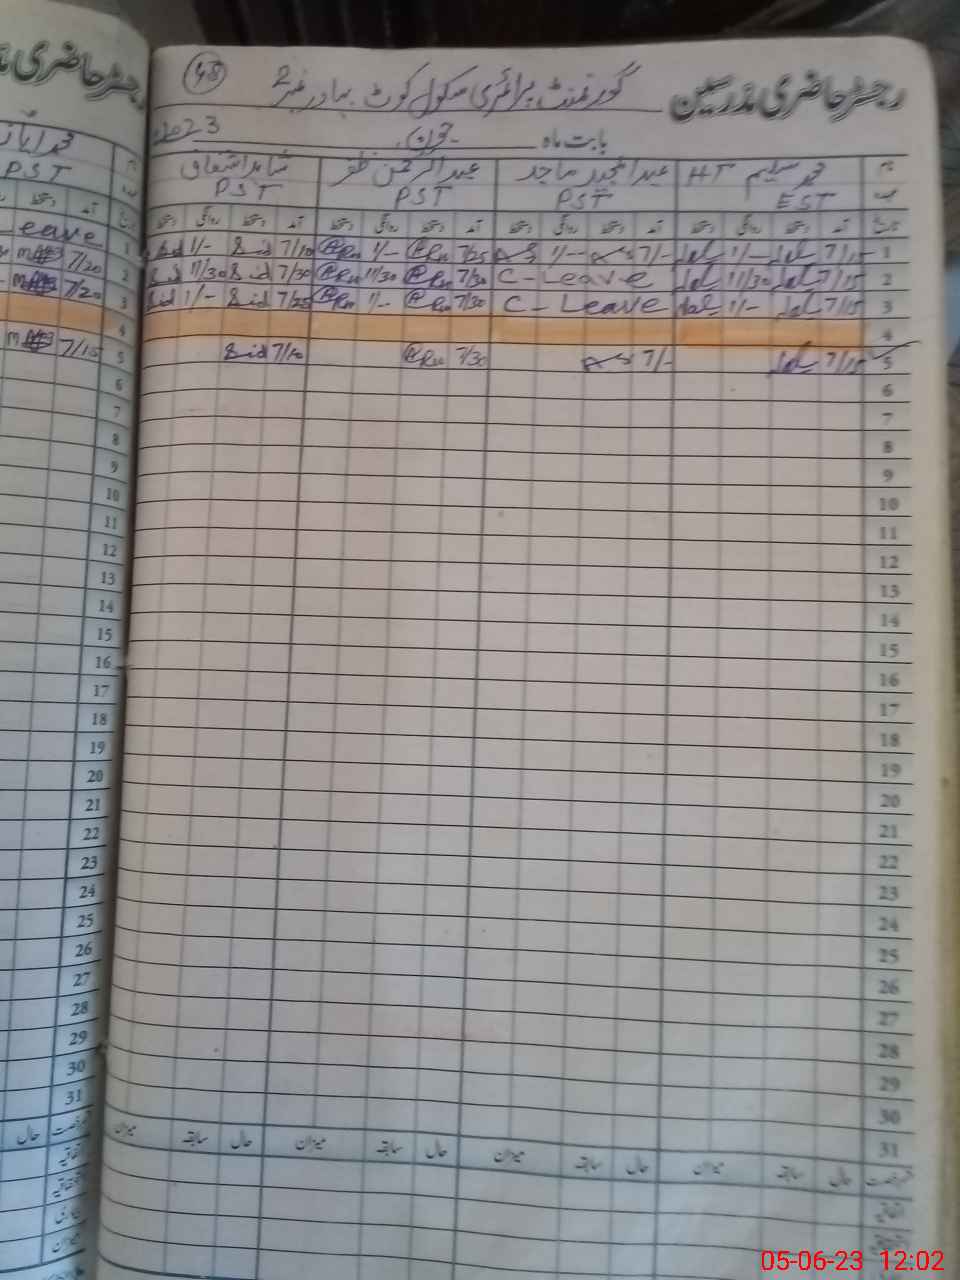 رجسٹر حاضری مدرسین گورنمنٹ پرائمری سکول کوٹ بہادر نمبر 2 48
بابت ماہ جون 2023
محمد سلیم HT عبدالمجید ماجد عبدالرحمن ظفر شاہد اشفاق
EST PST PST PST
تاریخ آمد دستخط روانگی دستخط آمد دستخط روانگی دستخط آمد دستخط روانگی دستخط آمد دستخط روانگی دستخط
1 7/15 1/- 7/- 1/- 7/25 1/- 7/10 Sid 1/- Sid
2 7/15 11/30 C-Leave 7/30 11/30 7/30 Sid 11/30 Sid
3 7/15 1/- C-Leave 7/30 1/- 7/25 Sid 1/- Sid
4
5 7/15 7/- 7/30 7/10 Sid
6
7
8
9
10
11
12
13
14
15
16
17
18
19
20
21
22
23
24
25
26
27
28
29
30
31
قسم رخصت حال سابقہ میزان حال سابقہ میزان حال سابقہ میزان حال سابقہ میزان
اتفاقیہ
رجسٹر حاضری
PST
Leave
1 7/20
2 7/20
3
4
5 7/15
6
7
8
9
10
11
12
13
14
15
16
17
18
19
20
21
22
23
24
25
26
27
28
29
30
31
قسم رخصت حال
اتفاقیہ
بیماری
میزان
05-06-23 12:02